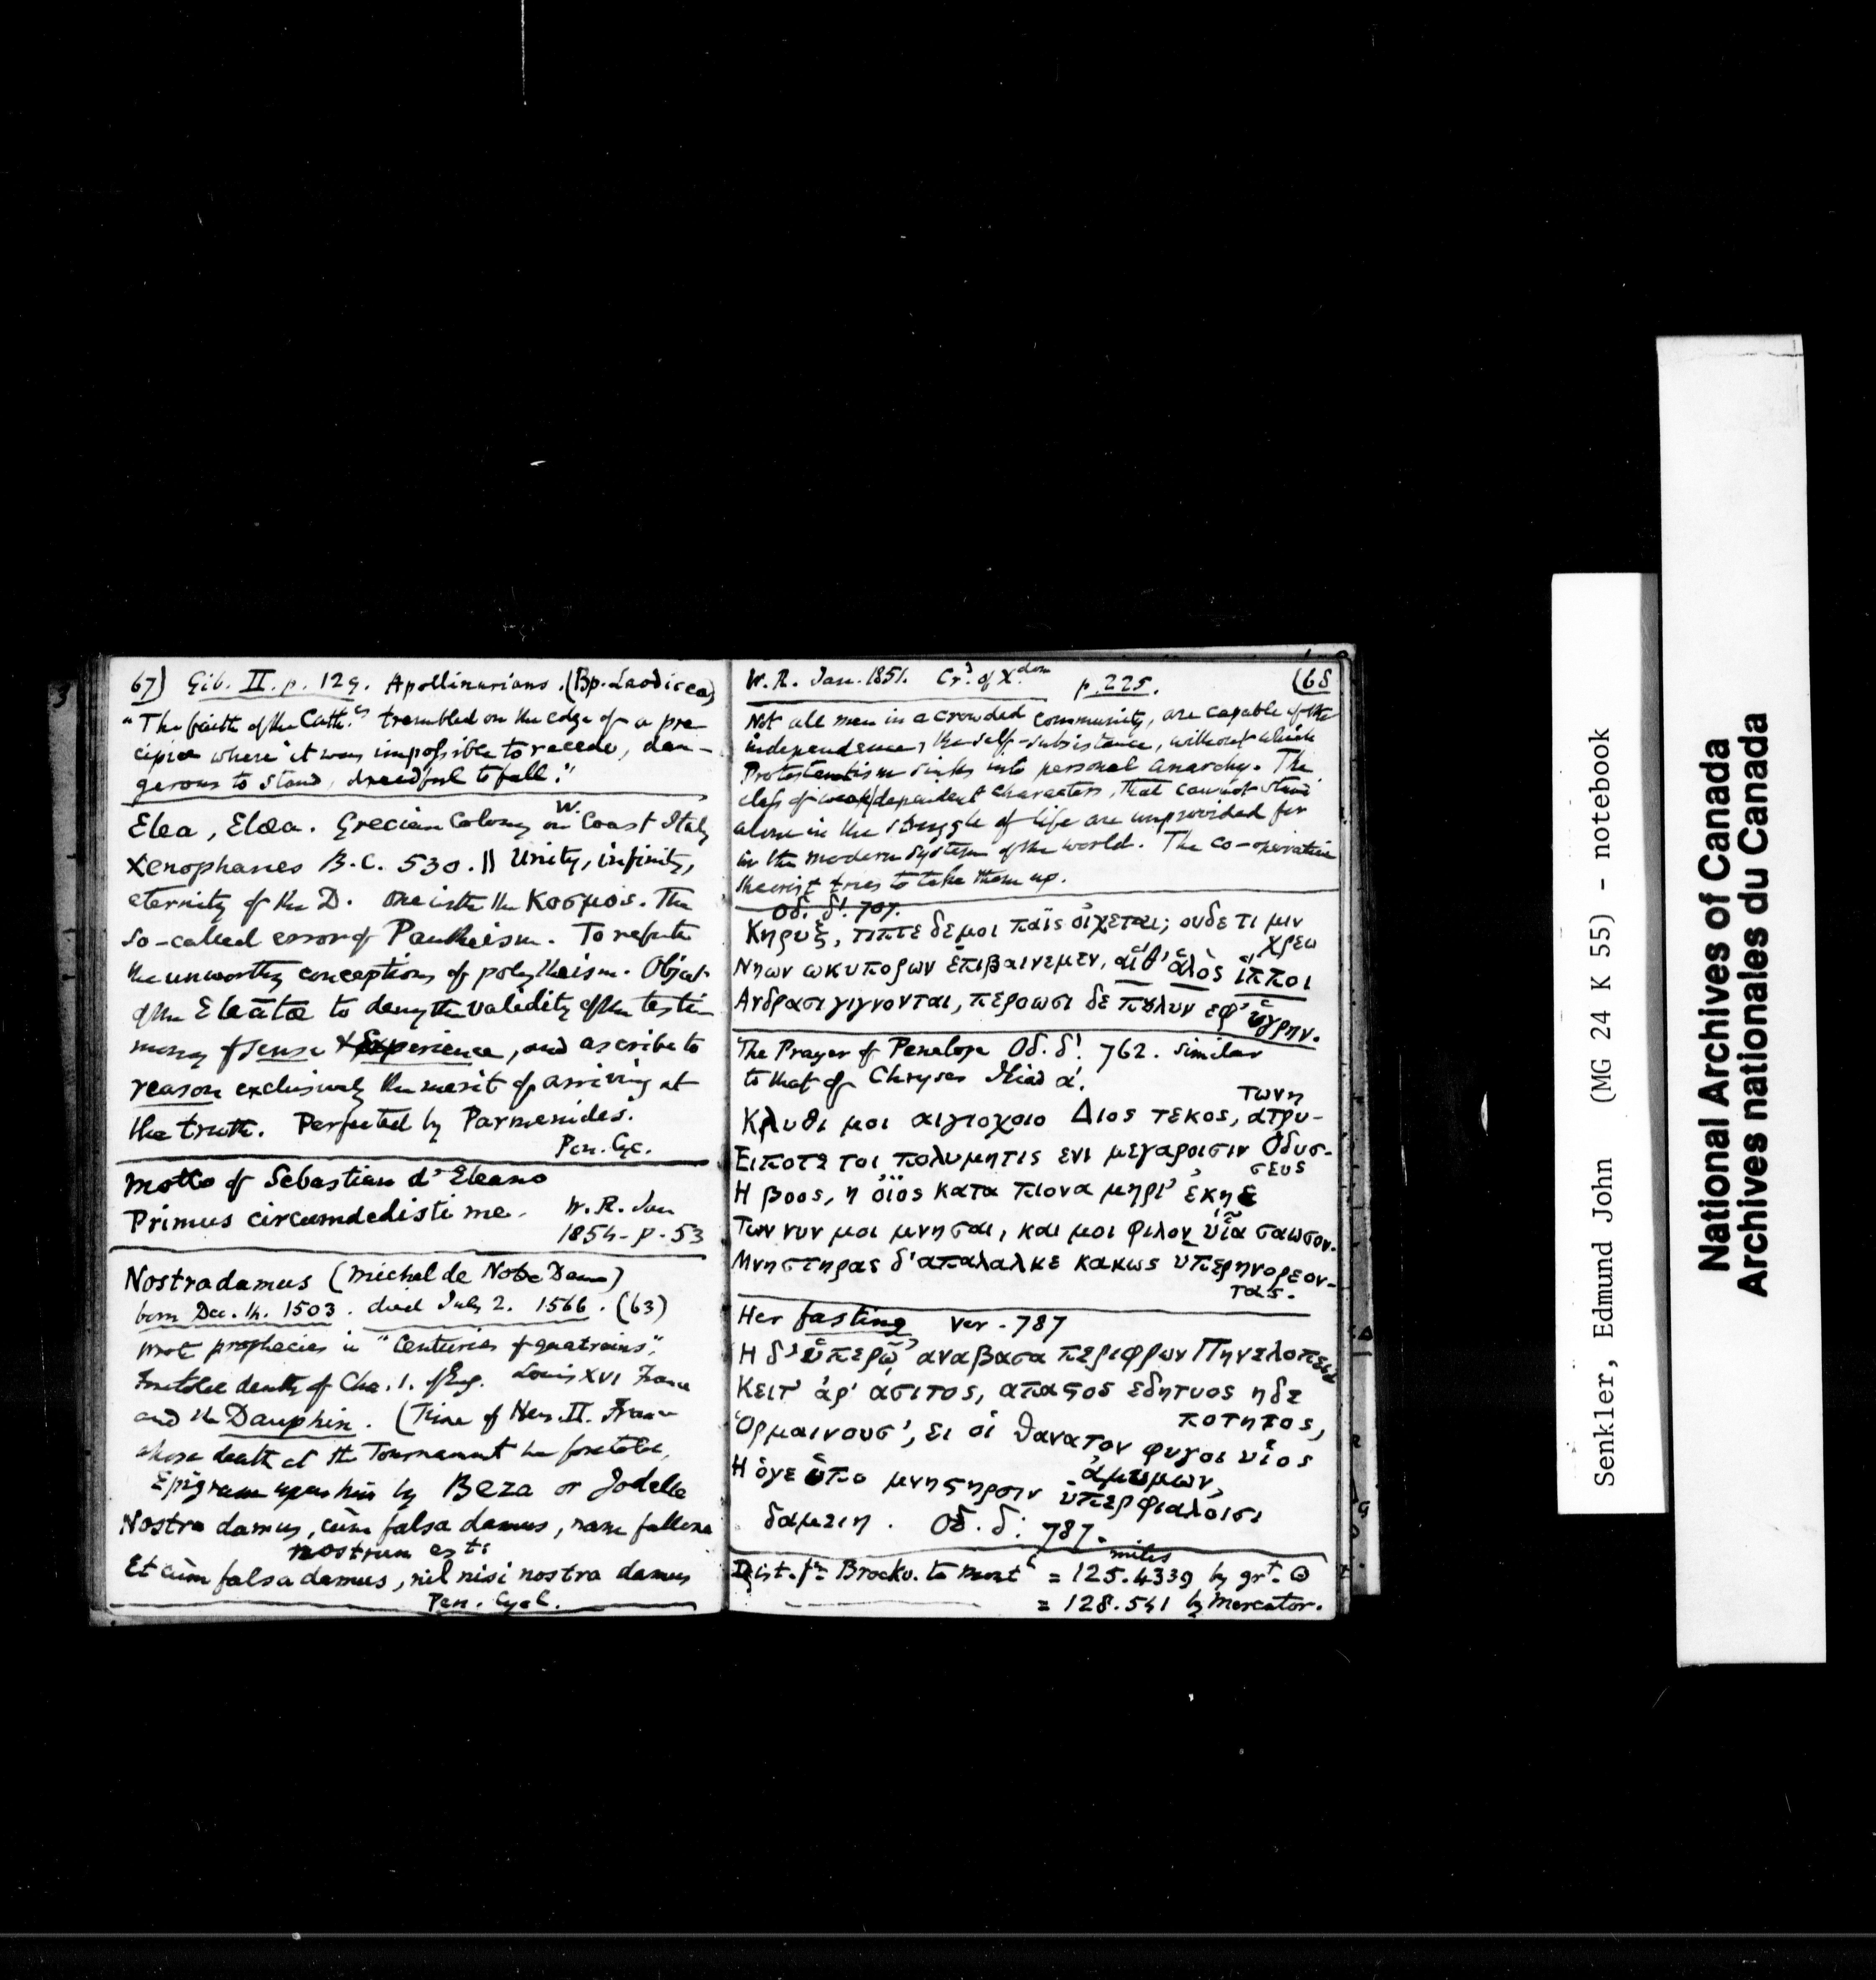 67) Gib. II. p. 129. Apollinarians. (Bp. Laodicea)
"The faith of the Cath.cs trembled on the edge of a pre-
cipice where it was impossible to recede, dan-
gerous to stand, dreadful to fall."
Elea, Elæa. Grecian Colony on W. Coast Italy
Xenophanes B.C. 530. || Unity, infinity,
eternity of the D. One with the Κοσμος. The
so-called error of Pantheism. To refute
the unworthy conceptions of polytheism. Object
of the Eleātæ to deny the validity of the testi-
mony of sense & Experience, and ascribe to
reason exclusively the merit of arriving at
the truth. Perfected by Parmenides.
Pen. Cyc.
Motto of Sebastian d'Elcano
Primus circumdedisti me. W. R. Jan
1854 - p. 53
Nostradamus (Michel de Notre Dame)
born Dec. 14. 1503. died July 2. 1566. (63)
Most prophecies in "Centuries of quatrains".
Foretold death of Cha. 1. of Eng. Louis XVI France
and the Dauphin. (Time of Hen. II. France
whose death at the Tournament he foretold,
Epigram upon him by Beza or Jodelle
Nostra damus, cùm falsa damus, nam fallere
nostrum est:
Et cùm falsa damus, nil nisi nostra damus
Pen. Cycl.
W. R. Jan. 1851. Cr.? of Xdom p. 225. (68
Not all men in a crowded community, are capable of the
independence, the self-subsistance, without which
Protestantism sinks into personal anarchy. The
class of weak, dependent characters, that cannot stand
alone in the struggle of life are unprovided for
in the modern system of the world. The co-operative
theorist tries to take them up.
Οδ. δ'. 707.
Κηρυξ, τιπτε δε μοι παϊς οἰχεται; ουδε τι μιν
χρεω
Νηων ωκυπορων ἐπιβαινεμεν, αἵθ' ἁλὸς ἵπποι
Ανδρασι γιγνονται, περοωσι δε πουλυν εφ' ὑγρην.
The Prayer of Penelope Od. δ'. 762. similar
to that of Chryses Iliad α'.
Κλυθι μοι αιγιοχοιο Διος τεκος, ατρυ-
τωνη
Ειποτε τοι πολυμητις ενι μεγαροισιν Οδυσ-
σευς
Η βοος, η ὀϊος κατα πιονα μηρι' ἐκηε
Των νυν μοι μνησαι, και μοι φιλον υἷα σαωσον.
Μνηστηρας δ' απαλαλκε κακως ὑπερηνορεον-
τας.
Her fasting ver. 787
Η δ' ὑπερῶ' αναβασα περιφρων Πηνελοπεια
Κειτ' ἀρ' ἀσιτος, απαςος εδητυος ηδε
ποτητος,
Ὁρμαινουσ', ει οἱ θανατον φυγοι υἱος
ἀμυμων,
Η ὁγε ὑπο μνηςηρσιν ὑπερφιαλοισι
δαμειη. Οδ. δ: 787.
Dist. fm Brockv. to Montl = 125.4339 miles by grt. ⊙
= 128.541 by Mercator.
Senkler, Edmund John (MG 24 K 55) - notebook
National Archives of Canada
Archives nationales du Canada